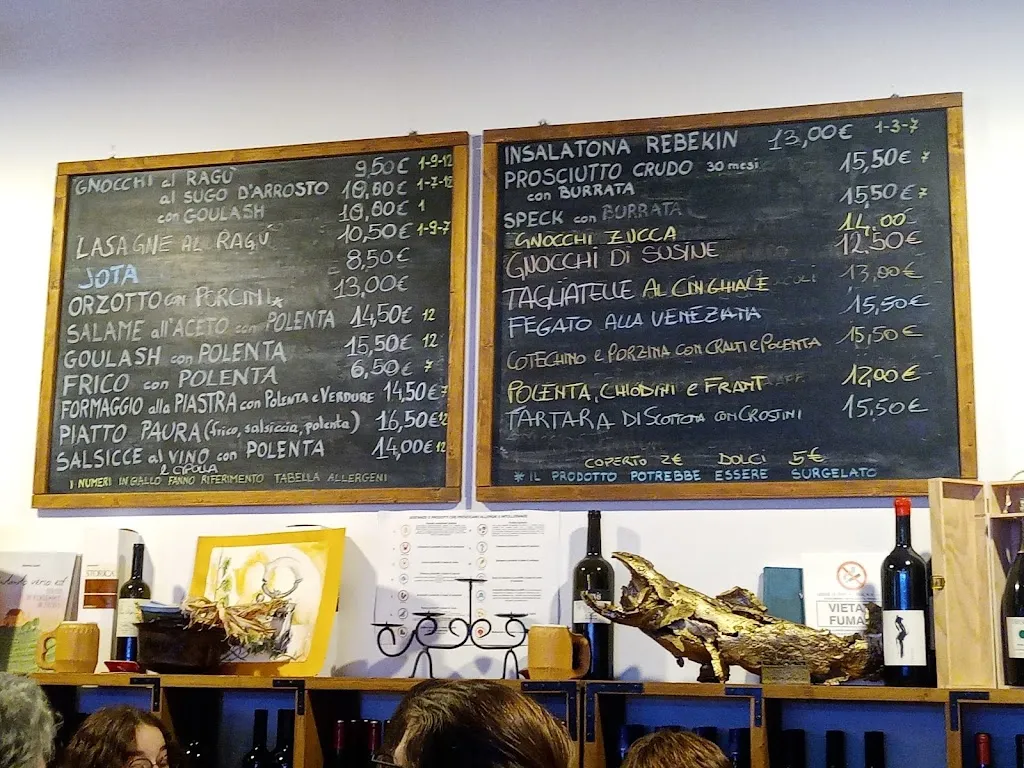 GNOCCHI al RAGÙ 9,50€ 1-9-12
al SUGO D'ARROSTO 10,00€ 1-7-12
con GOULASH 10,00€ 1
LASAGNE AL RAGÙ 10,50€ 1-9-7
JOTA 8,50€
ORZOTTO con PORCINI* 13,00€
SALAME all'ACETO con POLENTA 14,50€ 12
GOULASH con POLENTA 15,50€ 12
FRICO con POLENTA 6,50€ 7
FORMAGGIO alla PIASTRA con POLENTA e VERDURE 14,50€ 7
PIATTO PAURA (frico, salsiccia, polenta) 16,50€ 12
SALSICCE al VINO con POLENTA 14,00€ 12
e CIPOLLA
I NUMERI IN GIALLO FANNO RIFERIMENTO TABELLA ALLERGENI
INSALATONA REBEKIN 13,00€ 1-3-7
PROSCIUTTO CRUDO 30 mesi 15,50€ 7
con BURRATA
SPECK con BURRATA 15,50€ 7
GNOCCHI ZUCCA 14,00
GNOCCHI DI SUSINE 12,50€
TAGLIATELLE AL CINGHIALE 13,00€
FEGATO ALLA VENEZIANA 15,50€
COTECHINO e PORZINA CON CRAUTI e POLENTA 15,50€
POLENTA, CHIODINI e FRANT 12,00€
TARTARA DI SCOTTONA CON CROSTINI 15,50€
COPERTO 2€ DOLCI 5€
* IL PRODOTTO POTREBBE ESSERE SURGELATO
STORICA
VIETA
FUMA